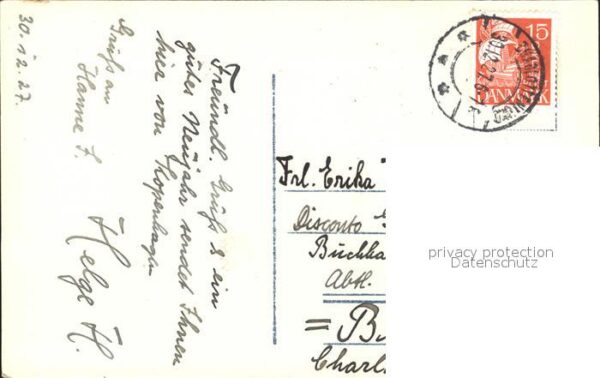 30.12.27.
Gruß an
Hanne S.
Freundl. Gruß & ein
gutes Neujahr sendet Ihnen
hier von Kopenhagen
Helge H.
15
DANMARK
30.12.27.6
Frl. Erika
Disconto
Buchha
Abtl.
= B
Charl
privacy protection
Datenschutz